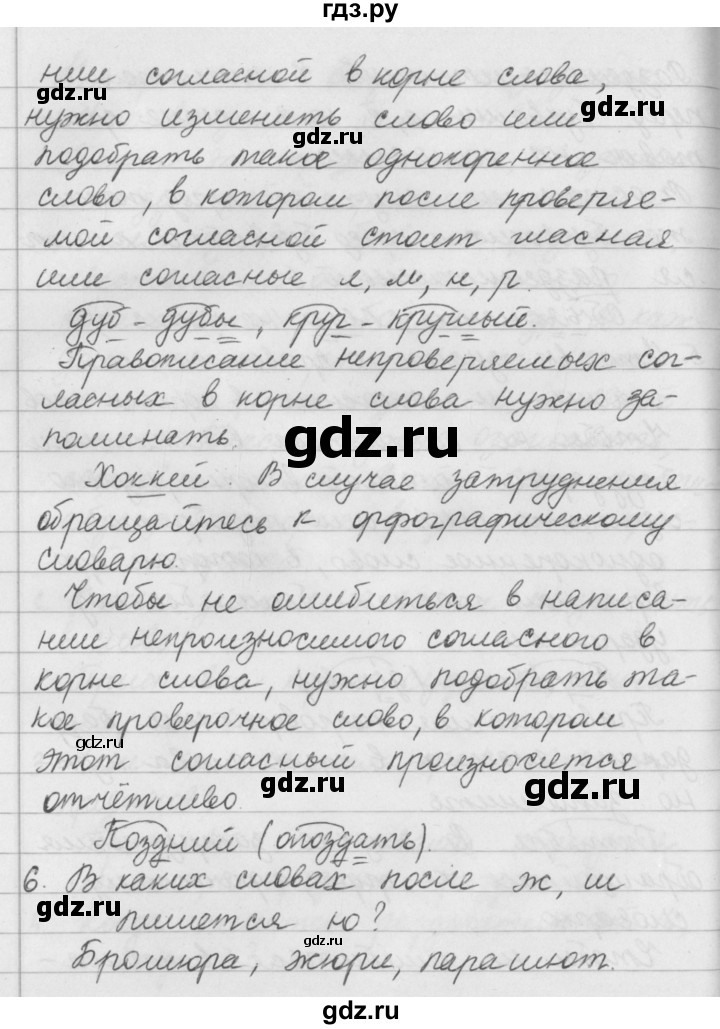 гдз.ру
нии согласной в корне слова,
нужно изменить слово или
подобрать такое однокоренное
слово, в котором после проверяе-
мой согласной стоит гласная
или согласные л, м, н, р.
дуб - дубы, круг - круглый.
Правописание непроверяемых сог-
ласных в корне слова нужно за-
поминать.
Хоккей. В случае затруднения
обращайтесь к орфографическому
словарю.
Чтобы не ошибиться в написа-
нии непроизносимого согласного в
корне слова, нужно подобрать та-
кое проверочное слово, в котором
этот согласный произносится
отчётливо.
Поздний (опоздать).
6. В каких словах после ж, ш
пишется ю?
Брошюра, жюри, парашют.
gdz.ru
gdz.ru
gdz.ru
gdz.ru
gdz.ru
gdz.ru
gdz.ru
gdz.ru
gdz.ru
gdz.ru
gdz.ru
gdz.ru
gdz.ru